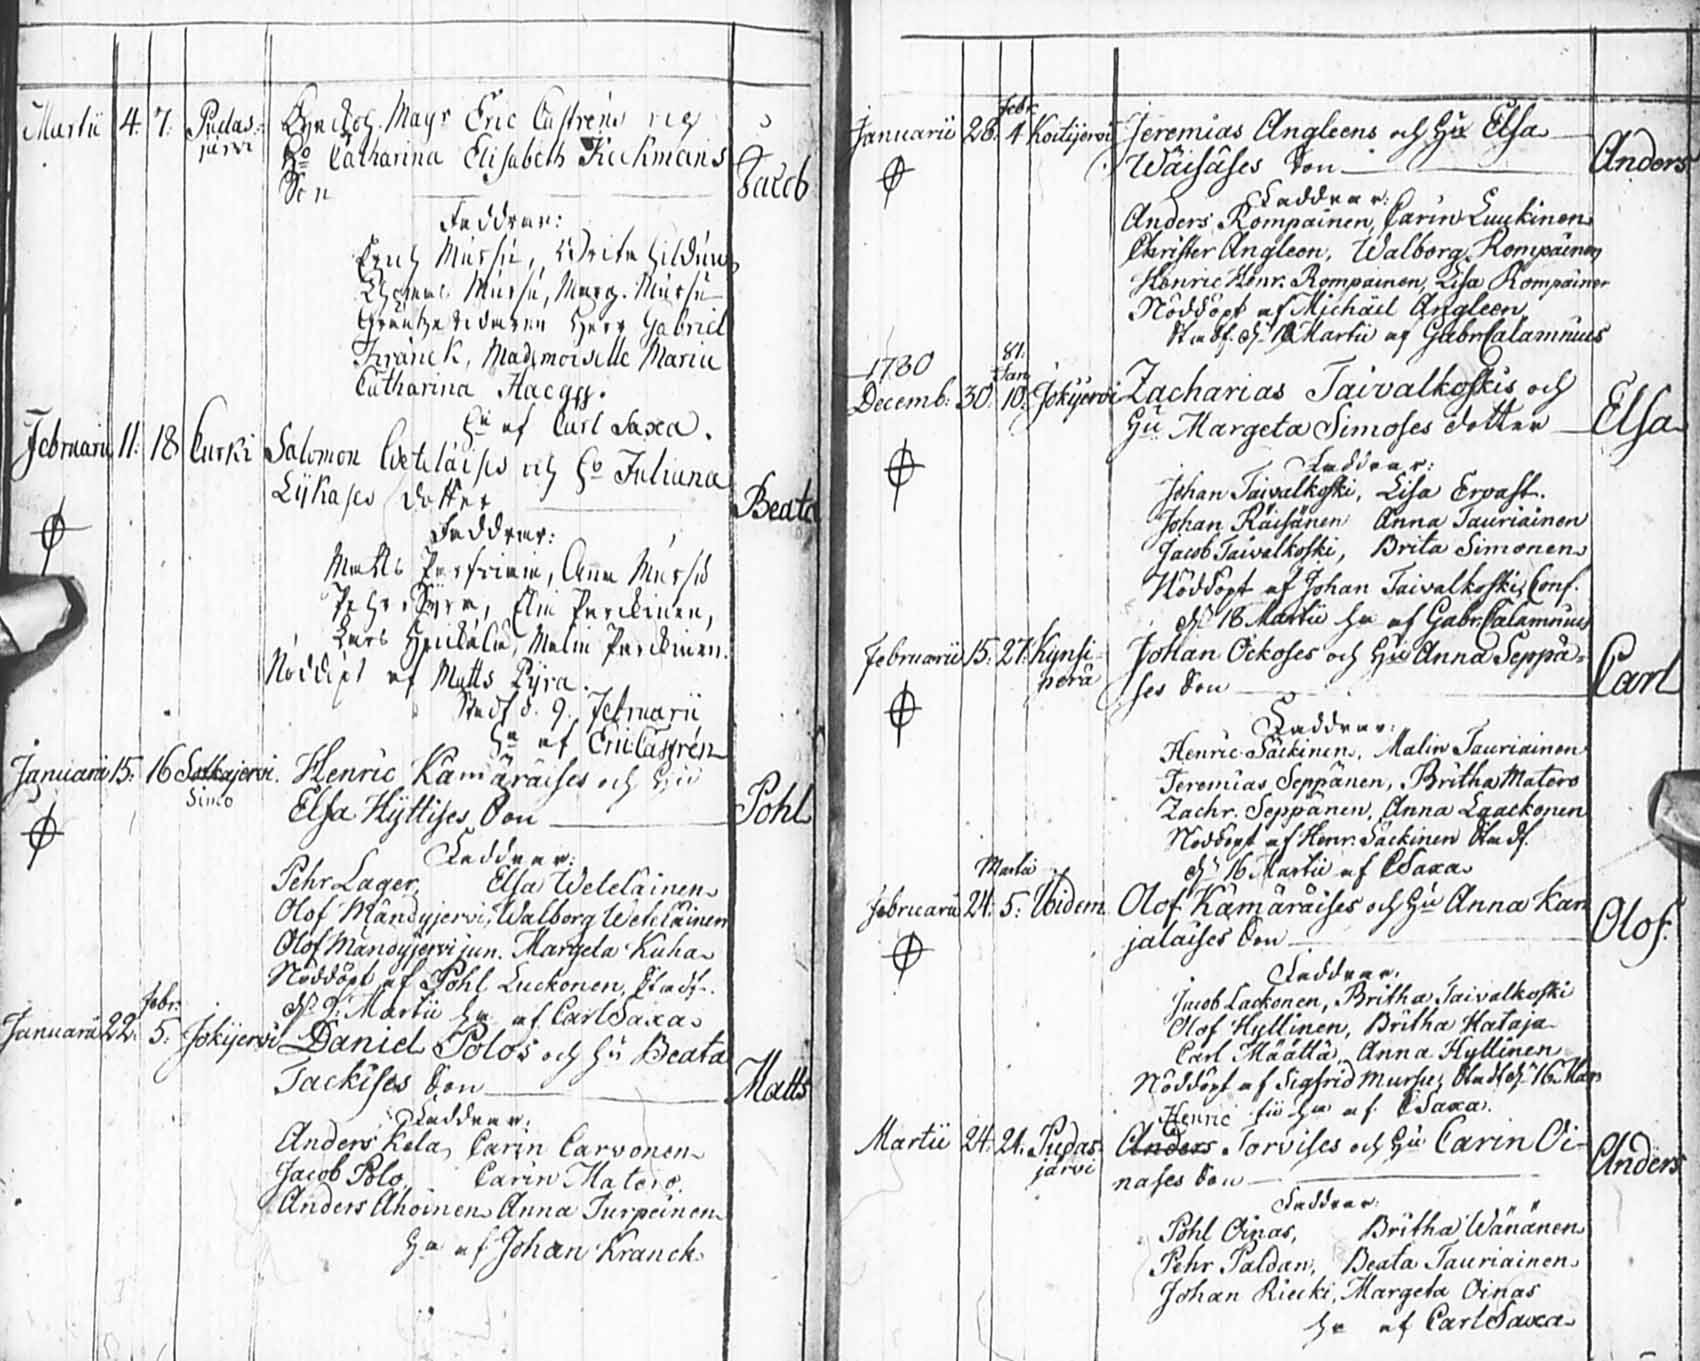 Martii 4. 7. Pudas-
järvi
Mag:r Eric Castréns och
H:o Catharina Elisabeth Kiekmans
Son
Jacob
Faddrar:
Mursu, Brita
Mursu, Marg. Mursu
Herr Gabriel
Kranck, Mademoiselle Maria
Catharina Haegg.
af Carl Saxa.
Februarii 11. 18 Curki Salomon Weteläises och H:o Juliana
Lykases dotter
Beata
Faddrar:
Matts Anna Mursu
Pehr Pyra, Elin Parckinen,
Lars Heickälä, Malin Parckinen.
Nöddöpt af Matts Pyra.
Stadf. d. 9. Februarii
af Eric Castrén
Januarii 15. 16 Sotkajervi. Henric Kämäräises och Hu
Simo
Elsa Hyttises Son
Pohl
Faddrar:
Pehr Lager, Elsa Weteläinen
Olof Mändyjervi, Walborg Weteläinen
Olof Mändyjervi jun. Margeta Kuha
Nöddöpt af Pohl Luckonen, Stadf.
d. 9. Martii af Carl Saxa
Febr.
Januarii 22. 5. Jokijervi Daniel Polos och Hu Beata
Tackises Son
Matts
Faddrar:
Anders Kela, Carin Carvonen
Jacob Polo, Carin Matero.
Anders Ahoinen Anna Turpeinen
af Johan Kranck
Febr.
Januarii 28. 4 Koitijervi Jeremias Angleens och Hu Elsa
Wäisäses Son
Anders
Faddrar:
Anders Kompainen, Carin Luukinen
Christer Angleen, Walborg Kompainen
Henric Henr. Kompainen, Lisa Kompainen
Nöddöpt af Michäel Angleen
Stadf. d. Martii af Gabr. Calamnius
1780
81.
Jan.
Decemb: 30. 10. Jokijervi Zacharias Taivalkoskis och
Hu Margeta Simoses dotter
Elsa
Faddrar:
Johan Taivalkoski, Lisa Ervast.
Johan Räisänen Anna Tauriainen
Jacob Taivalkoski, Brita Simonen
Nöddöpt af Johan Taivalkoski, Conf.
d. 18 Martii af Gabr. Calamnius
Februarii 15. 27. Kynsi-
perä
Johan Ockoses och Hu Anna Seppä-
ses Son
Carl
Faddrar:
Henric Säckinen, Malin Tauriainen
Jeremias Seppänen, Britha Matero
Zachr. Seppänen, Anna Laackonen
Nöddöpt af Henr. Säckinen Stadf.
d. 16 Martii af C Saxa
Martii
Februarii 24. 5. Ibidem Olof Kämäräises och Hu Anna Kar
jalaises Son
Olof.
Faddrar:
Jacob Lackonen, Britha Taivalkoski
Olof Hyttinen, Britha Hataja
Carl Määttä, Anna Hyttinen
Nöddöpt af Sigfrid Mursu, Stadf. d. 16 Mar
af C Saxa.
Henric
Martii 24. 24. Pudas-
järvi
Anders Torvises och Hu Carin Oi-
nases Son
Anders
Faddrar:
Pohl Oinas, Britha Wänänen
Pehr Paldan, Beata Tauriainen
Johan Riecki, Margeta Oinas
af Carl Saxa